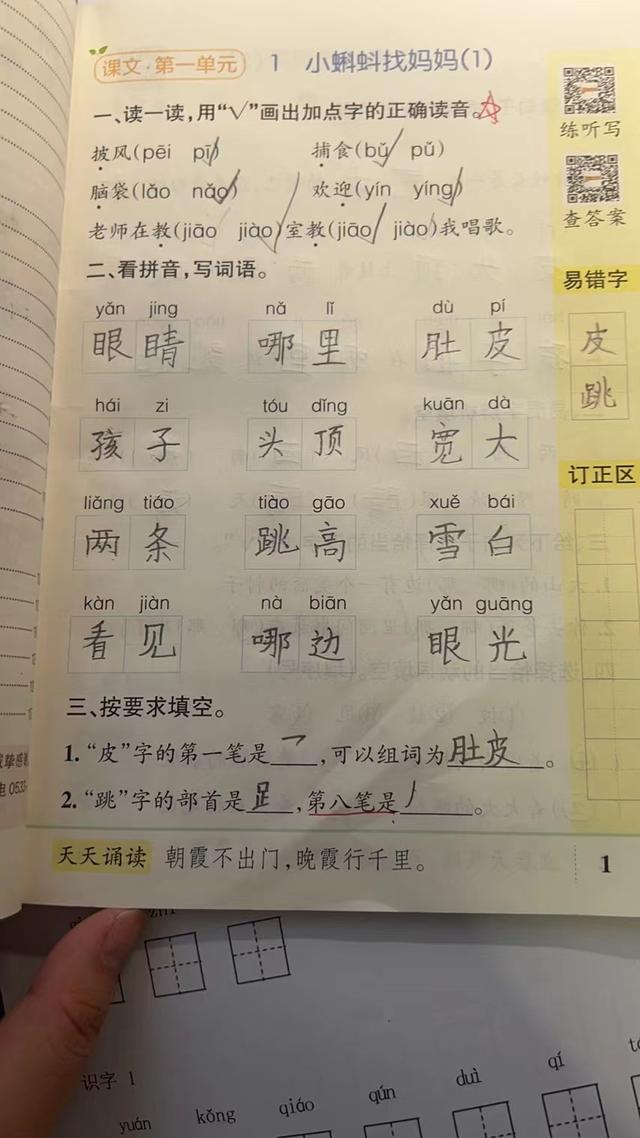 课文·第一单元
1 小蝌蚪找妈妈(1)
一、读一读,用“√”画出加点字的正确读音。
披风(pēi pī)
捕食(bǔ pǔ)
脑袋(lǎo nǎo)
欢迎(yín yíng)
老师在教(jiāo jiào)室教(jiāo jiào)我唱歌。
二、看拼音,写词语。
yǎn jing nǎ lǐ dù pí
眼睛 哪里 肚皮
hái zi tóu dǐng kuān dà
孩子 头顶 宽大
liǎng tiáo tiào gāo xuě bái
两条 跳高 雪白
kàn jiàn nà biān yǎn guāng
看见 哪边 眼光
三、按要求填空。
1. “皮”字的第一笔是乛,可以组词为肚皮。
2. “跳”字的部首是𧾷,第八笔是丿。
天天诵读 朝霞不出门,晚霞行千里。
1
练听写
查答案
易错字
皮
跳
订正区
电 0533
识字 1
yuán kǒng qiáo qún duì qí